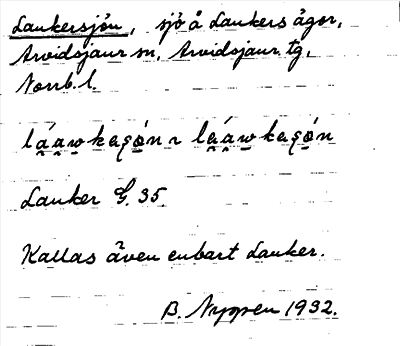 Laukersjön, sjö å Laukers ägor,
Arvidsjaur sn, Arvidsjaur tg,
Norrb. l.
Lauker G. 35.
Kallas även enbart Lauker.
B. Nygren 1932.